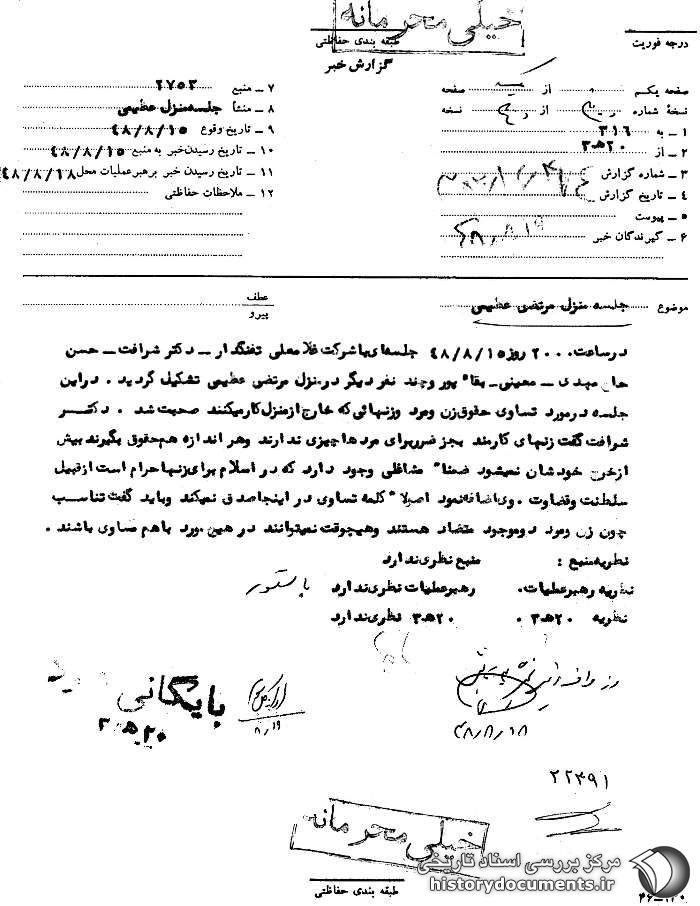 خیلی محرمانه
طبقه بندی حفاظتی
درجه فوریت
گزارش خبر
صفحه یکم از یک صفحه
نسخهٔ شماره از نسخه
۱ – به ۳۱۶
۲ – از ۲۰ هـ ۳
۳ – شماره گزارش
٤ – تاریخ گزارش
۵ – پیوست ۴۸/۸/۱۹
۶ – گیرندگان خبر
۷ – منبع ۲۷۵۳
۸ – منشأ جلسه منزل عظیمی
۹ – تاریخ وقوع ۴۸/۸/۱۵
۱۰ – تاریخ رسیدن خبر به منبع ۴۸/۸/۱۵
۱۱ – تاریخ رسیدن خبر برهبر عملیات محل ۴۸/۸/۱۸
۱۲ – ملاحظات حفاظتی
موضوع جلسه منزل مرتضی عظیمی
عطف
پیرو
در ساعت ۲۰۰۰ روز ۴۸/۸/۱۵ جلسه‌ای با شرکت غلامعلی تفنگدار – دکتر شرافت – حسن
حاج مهدی – معینی – بقاء پور و چند نفر دیگر در منزل مرتضی عظیمی تشکیل گردید . در این
جلسه در مورد تساوی حقوق زن و مرد و زنهائی که خارج از منزل کار میکنند صحبت شد . دکتر
شرافت گفت زنهای کارمند بجز ضرر برای مردها چیزی ندارند و هر اندازه هم حقوق بگیرند بیش
از خرج خودشان نمیشود ضمناً مشاغلی وجود دارد که در اسلام برای زنها حرام است از قبیل
سلطنت و قضاوت . وی اضافه نمود اصولاً کلمه تساوی در اینجا صدق نمیکند و باید گفت تناسب
چون زن و مرد دو موجود متضاد هستند و هیچوقت نمیتوانند در همین مورد با هم مساوی باشند .
نظریه منبع : منبع نظری ندارد
نظریه رهبر عملیات . رهبر عملیات نظری ندارد
نظریه ۲۰ هـ ۳ . ۲۰ هـ ۳ نظری ندارد
۴۸/۸/۱۸
بایگانی
۸/۱۹
۲۰ هـ ۳
۲۲۴۹۱
خیلی محرمانه
طبقه بندی حفاظتی
مرکز بررسی اسناد تاریخی
historydocuments.ir